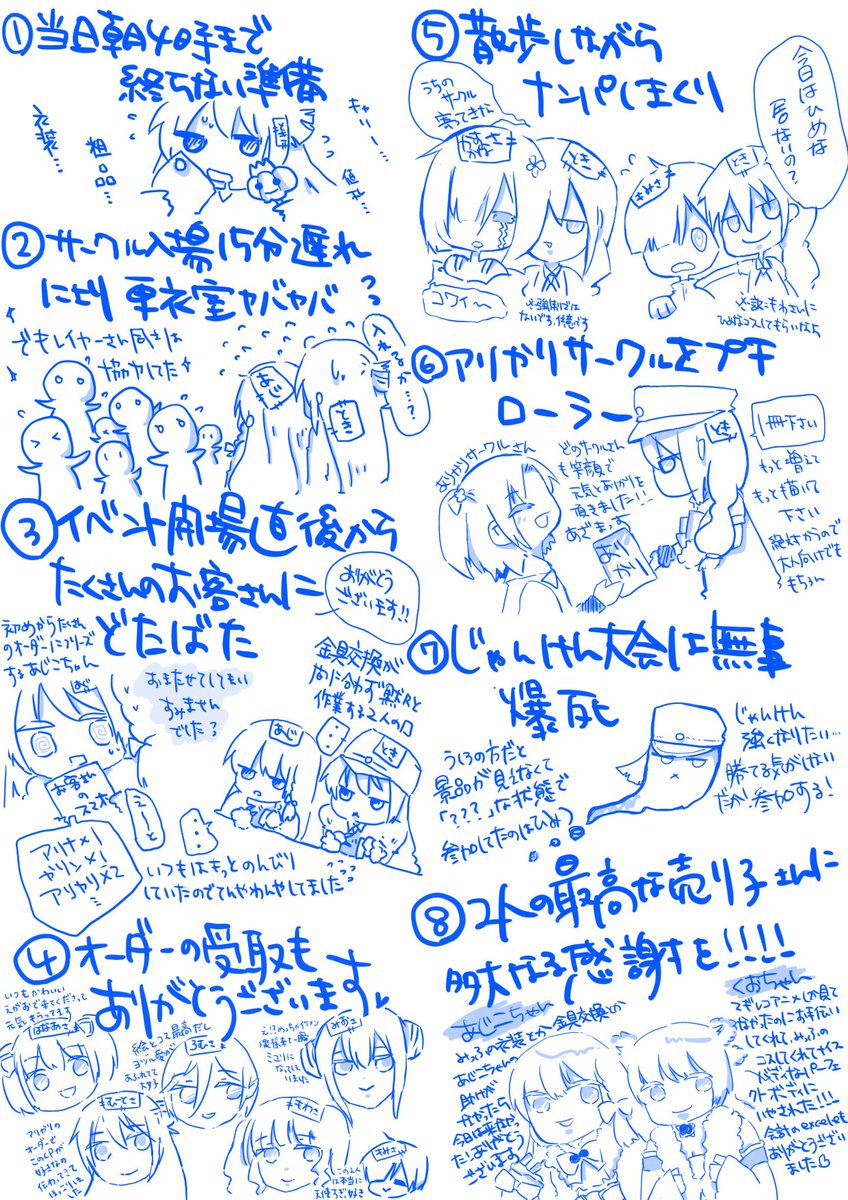 ① 当日朝4時まで
終らない準備
衣装…
粗品…
キャリー…
値札…
② サークル入場15分遅れ
により更衣室ヤバヤバ
でもレイヤーさん同士は
協力してた
あじ
ときこ
入れるか…?
③ イベント開場直後から
たくさんのお客さんに
どたばた
ありがとう
ございます!!
初めからたくさん
のオーダーにフリーズ
するあじこちゃん
おまたせしてしまい
すみません
でした
金具交換が
間に合わず黙々と
作業する2人の図
あじ
とき
お客さん
えーと
アリナ×1
カリン×1
アリカリ×2
いつもはもっとのんびり
していたのでてんやわんやしてました
④ オーダーの受取も
ありがとうございます
いつもかわいい
えがおで来てくださって
元気もらってます
はなあさ
絵とコス最高だし
あふれてて
大好き
ろむさ
みおさ
なっていま
いました
むつさ
もわさ
きみさ
アリカリの
オーダーで
このCPが
好きなの
伝わってきて
ほっこりしていま
した
この2人
は本当に
天使すぎ好き
⑤ 散歩しながら
ナンパしまくり
うちの
サークル
寄ってきな
ときこ
コワイ〜
※強制では
ないです、任意です
今日はひめな
居ないの?
きみさ
とき
※訳:もわさんに
ひめなコスしてもらいなら
⑥ アリカリサークルをプチ
ローラー
ありかりサークルさん
どのサークルさん
も笑顔で
元気とありかりを
頂きました!!
あざまっす
ありかり
とき
1冊下さい
もっと増えて
もっと描いて
下さい
絶対かうので
大人向けでも
もちろん
⑦ じゃんけん大会は無事
爆死
うしろの方だと
景品が見えなくて
「???」な状態で
参加してたのはひみつ
じゃんけん
強くなりたい…
勝てる気がしない
だが、参加する!
⑧ 2人の最高な売り子さんに
多大なる感謝を!!!!
あじこちゃん
みっふの衣装とか金具交換とか
あじこちゃんの
助けが
なかったら
今日は
た!ありがとう
ございます
くおちゃん
マギレコアニメしか見て
なかったのにお手伝い
してくれ、みっふの
コスしてくれてナイス
バディなパーフェ
クトボディに
いやされた!!!
会計のexcelも
ありがとうござい
ました